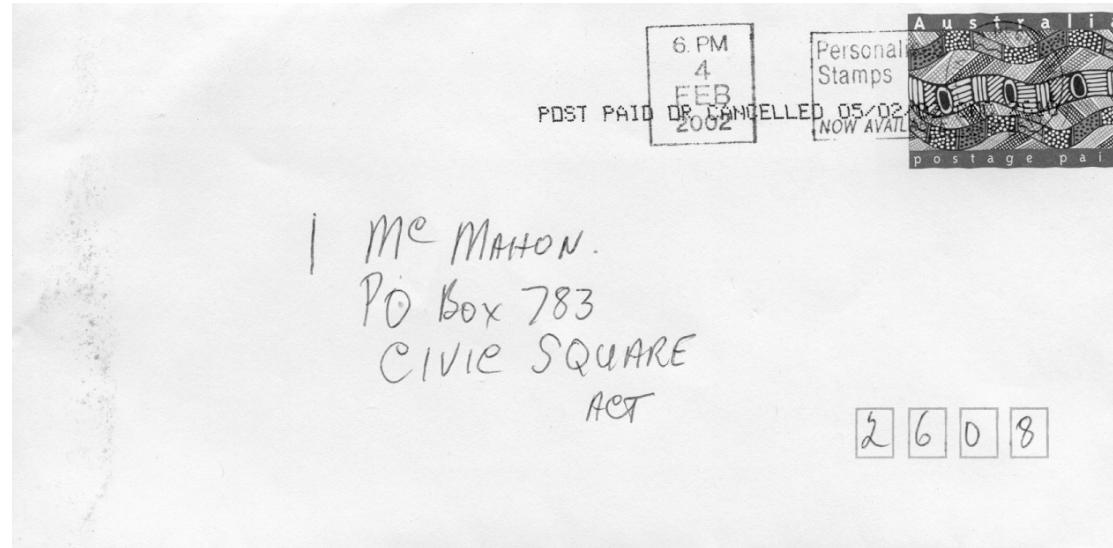 6. PM
4
FEB
2002
Personali
Stamps
NOW AVAIL
POST PAID OR CANCELLED 05/02/
Australia
postage pai
I McMAHON.
PO Box 783
CIVIC SQUARE
ACT
2608